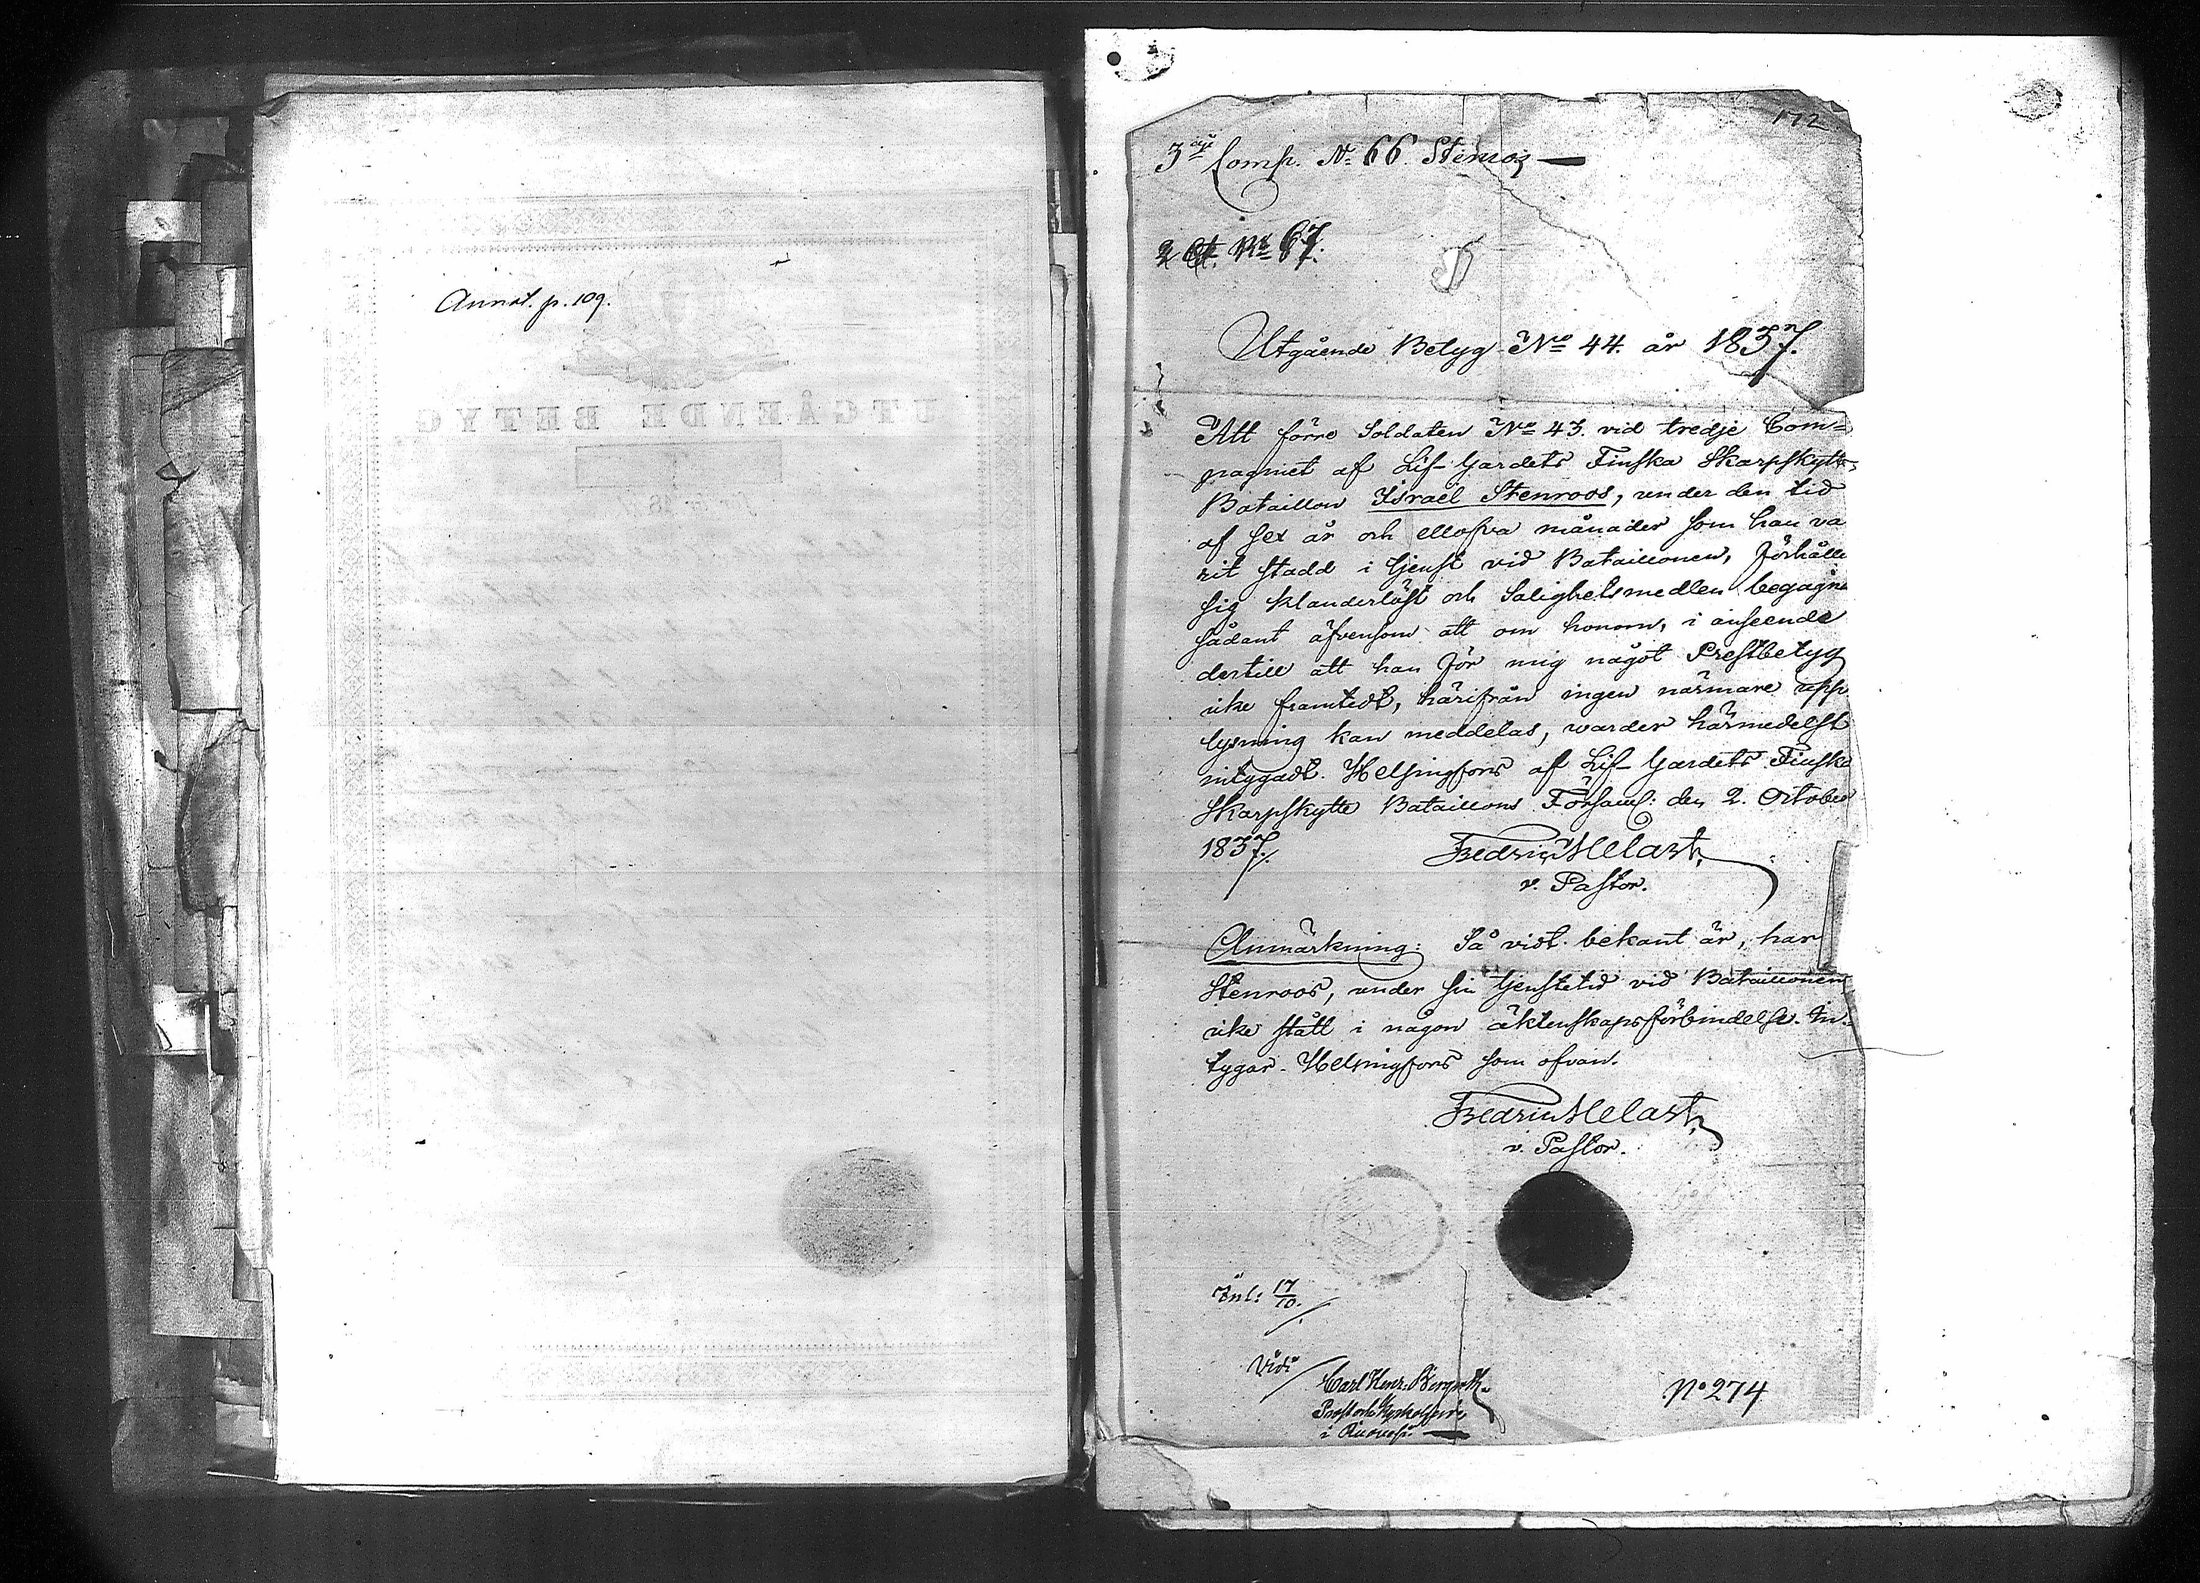 Annot. p. 109.
UTGÅENDE BETYG
172
3dje Comp. No 66. Stenros
No 67.
Utgående Betyg No 44. år 1837.
Att förre Soldaten No 43. vid tredje Com=
pagniet af Lif-Gardets Finska Skarpskytte-
Bataillon Israël Stenroos, under den tid
af sex år och ellofva månader som han va
rit stadd i tjenst vid Bataillonen, förhålli
sig klanderlöst och Salighetsmedlen begagna
sådant äfvensom att om honom, i anseende
dertill att han för mig något Prestbetyg
icke framtedt, härifrån ingen närmare upp
lysning kan meddelas, warder härmedelst
intygadt. Helsingfors af Lif-Gardets Finska
Skarpskytte Bataillons Församl: den 2. October
1837.
Fredric Helart
v. Pastor.
Anmärkning: Så vidt bekant är, har
Stenroos, under sin tjenstetid vid Bataillonen
icke stått i någon äktenskapsförbindelse. In-
tygar. Helsingfors som ofvan.
Fredric Helart
v. Pastor.
Inl: 17/10.
Vidi
Carl Henr.
i
No 274